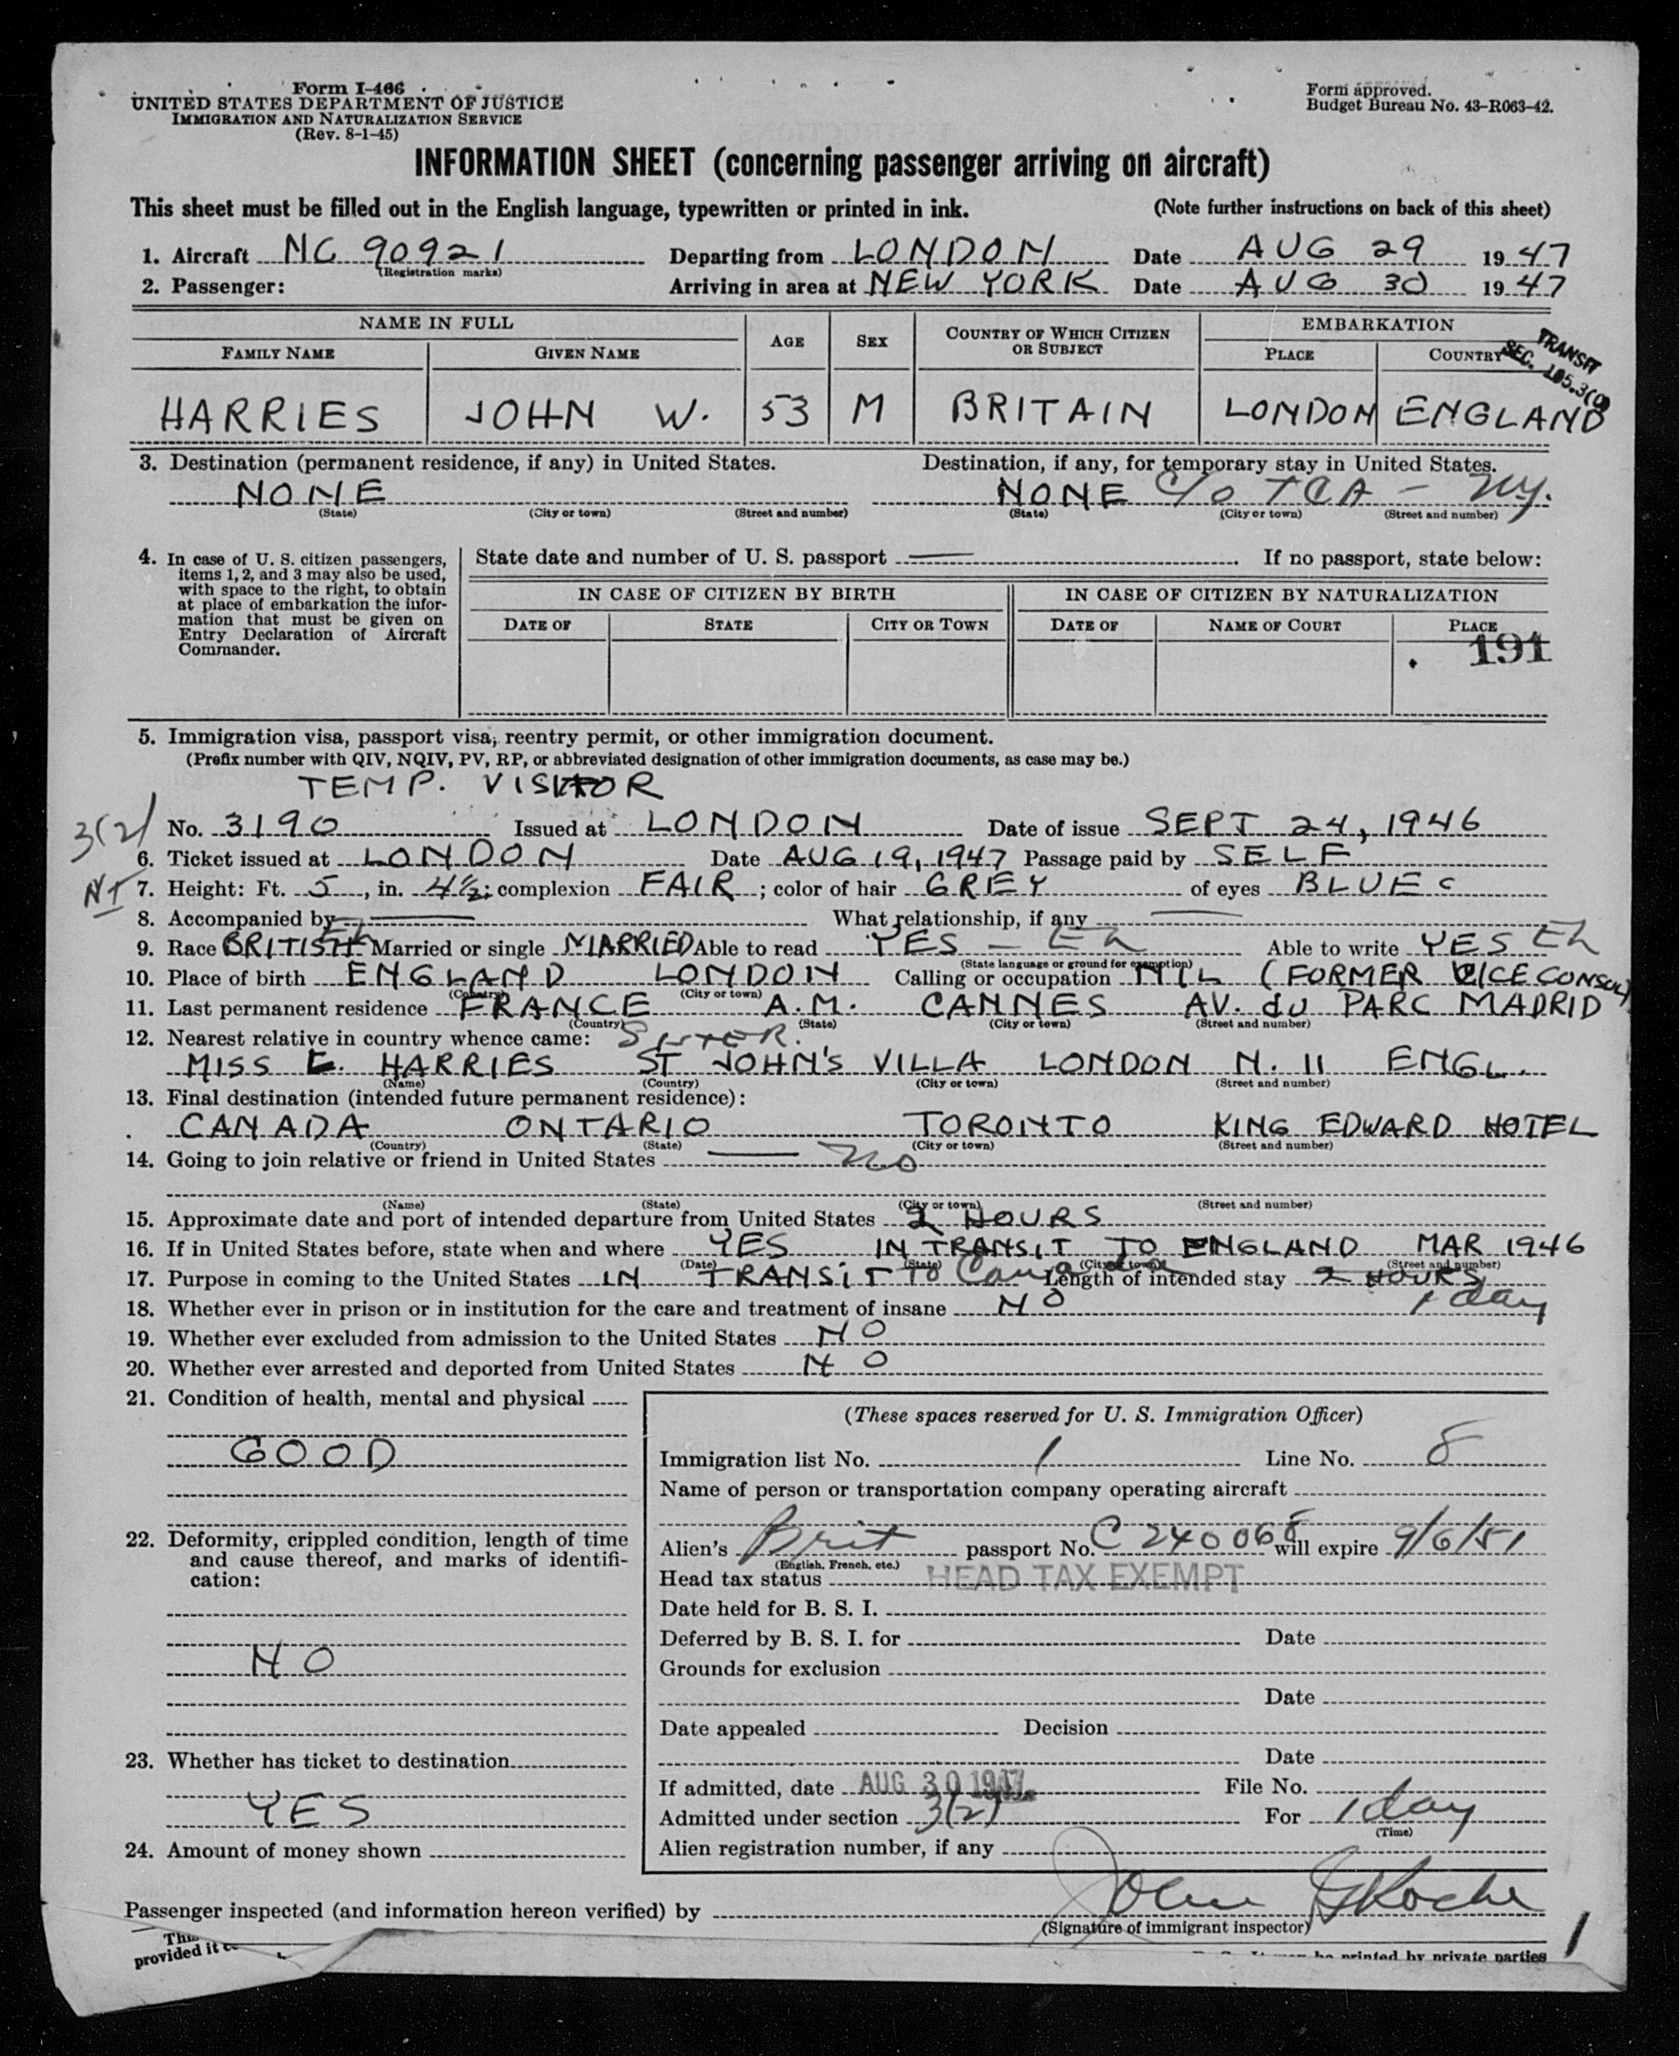 Form I-466
UNITED STATES DEPARTMENT OF JUSTICE
IMMIGRATION AND NATURALIZATION SERVICE
(Rev. 8-1-45)
Form approved.
Budget Bureau No. 43-R063-42.
INFORMATION SHEET (concerning passenger arriving on aircraft)
This sheet must be filled out in the English language, typewritten or printed in ink. (Note further instructions on back of this sheet)
1. Aircraft NC 90921 Departing from LONDON Date AUG 29 1947
(Registration marks)
2. Passenger: Arriving in area at NEW YORK Date AUG 30 1947
NAME IN FULL AGE SEX COUNTRY OF WHICH CITIZEN OR SUBJECT EMBARKATION
FAMILY NAME GIVEN NAME PLACE COUNTRY
TRANSIT
SEC. 105.3(C)
HARRIES JOHN W. 53 M BRITAIN LONDON ENGLAND
3. Destination (permanent residence, if any) in United States. Destination, if any, for temporary stay in United States.
NONE NONE C/o TCA - NY.
(State) (City or town) (Street and number) (State) (City or town) (Street and number)
4. In case of U. S. citizen passengers, items 1, 2, and 3 may also be used, with space to the right, to obtain at place of embarkation the information that must be given on Entry Declaration of Aircraft Commander.
State date and number of U. S. passport —. If no passport, state below:
IN CASE OF CITIZEN BY BIRTH IN CASE OF CITIZEN BY NATURALIZATION
DATE OF STATE CITY OR TOWN DATE OF NAME OF COURT PLACE
191
5. Immigration visa, passport visa, reentry permit, or other immigration document.
(Prefix number with QIV, NQIV, PV, RP, or abbreviated designation of other immigration documents, as case may be.)
TEMP. VISITOR
3(2)
No. 3190 Issued at LONDON Date of issue SEPT 24, 1946
6. Ticket issued at LONDON Date AUG 19, 1947 Passage paid by SELF
NT
7. Height: Ft. 5, in. 4½; complexion FAIR; color of hair GREY of eyes BLUE
8. Accompanied by — What relationship, if any —
9. Race BRITISH Married or single MARRIED Able to read YES - Able to write YES
(State language or ground for exemption)
10. Place of birth ENGLAND LONDON Calling or occupation NIL (FORMER VICE CONSUL)
(Country) (City or town)
11. Last permanent residence FRANCE A.M. CANNES AV. du PARC MADRID
(Country) (State) (City or town) (Street and number)
12. Nearest relative in country whence came: SISTER.
MISS E. HARRIES ST JOHN'S VILLA LONDON N. 11 ENGL.
(Name) (Country) (City or town) (Street and number)
13. Final destination (intended future permanent residence):
CANADA ONTARIO TORONTO KING EDWARD HOTEL
(Country) (State) (City or town) (Street and number)
14. Going to join relative or friend in United States — no
(Name) (State) (City or town) (Street and number)
15. Approximate date and port of intended departure from United States 2 HOURS
16. If in United States before, state when and where YES IN TRANSIT TO ENGLAND MAR 1946
(Date) (State) (City or town) (Street and number)
17. Purpose in coming to the United States IN TRANSIT TO Canada Length of intended stay 2 HOURS
1 day
18. Whether ever in prison or in institution for the care and treatment of insane NO
19. Whether ever excluded from admission to the United States NO
20. Whether ever arrested and deported from United States NO
21. Condition of health, mental and physical
GOOD
22. Deformity, crippled condition, length of time and cause thereof, and marks of identification:
NO
23. Whether has ticket to destination
YES
24. Amount of money shown
(These spaces reserved for U. S. Immigration Officer)
Immigration list No. 1 Line No. 8
Name of person or transportation company operating aircraft
Alien's Brit passport No. C 240068 will expire 9/6/51
(English, French, etc.)
Head tax status HEAD TAX EXEMPT
Date held for B. S. I.
Deferred by B. S. I. for Date
Grounds for exclusion
Date
Date appealed Decision
Date
If admitted, date AUG 30 1947 File No.
Admitted under section 3(2) For 1 day
(Time)
Alien registration number, if any
Passenger inspected (and information hereon verified) by John
(Signature of immigrant inspector)
1
provided it
be printed by private parties